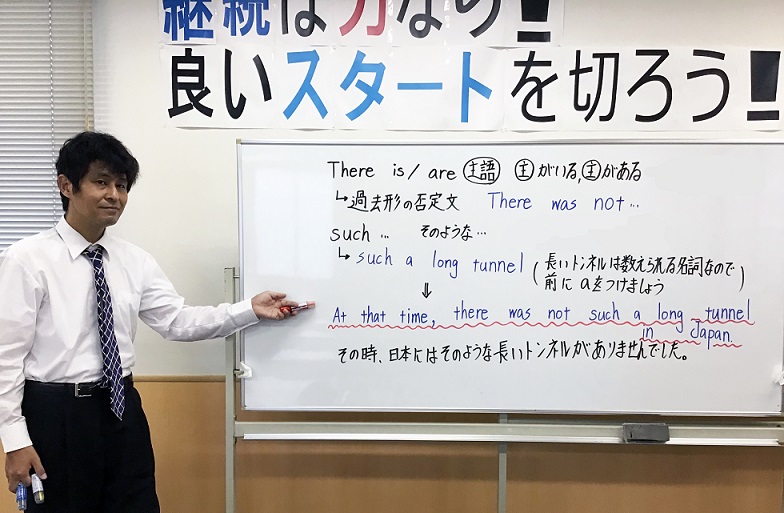 継続は力なり!!
良いスタートを切ろう!!
There is/are 主語 主がいる,主がある
↳過去形の否定文 There was not…
such … そのような…
↳ such a long tunnel (長いトンネルは数えられる名詞なので
前に aをつけましょう
⇓
At that time, there was not such a long tunnel
in Japan.
その時、日本にはそのような長いトンネルがありませんでした。